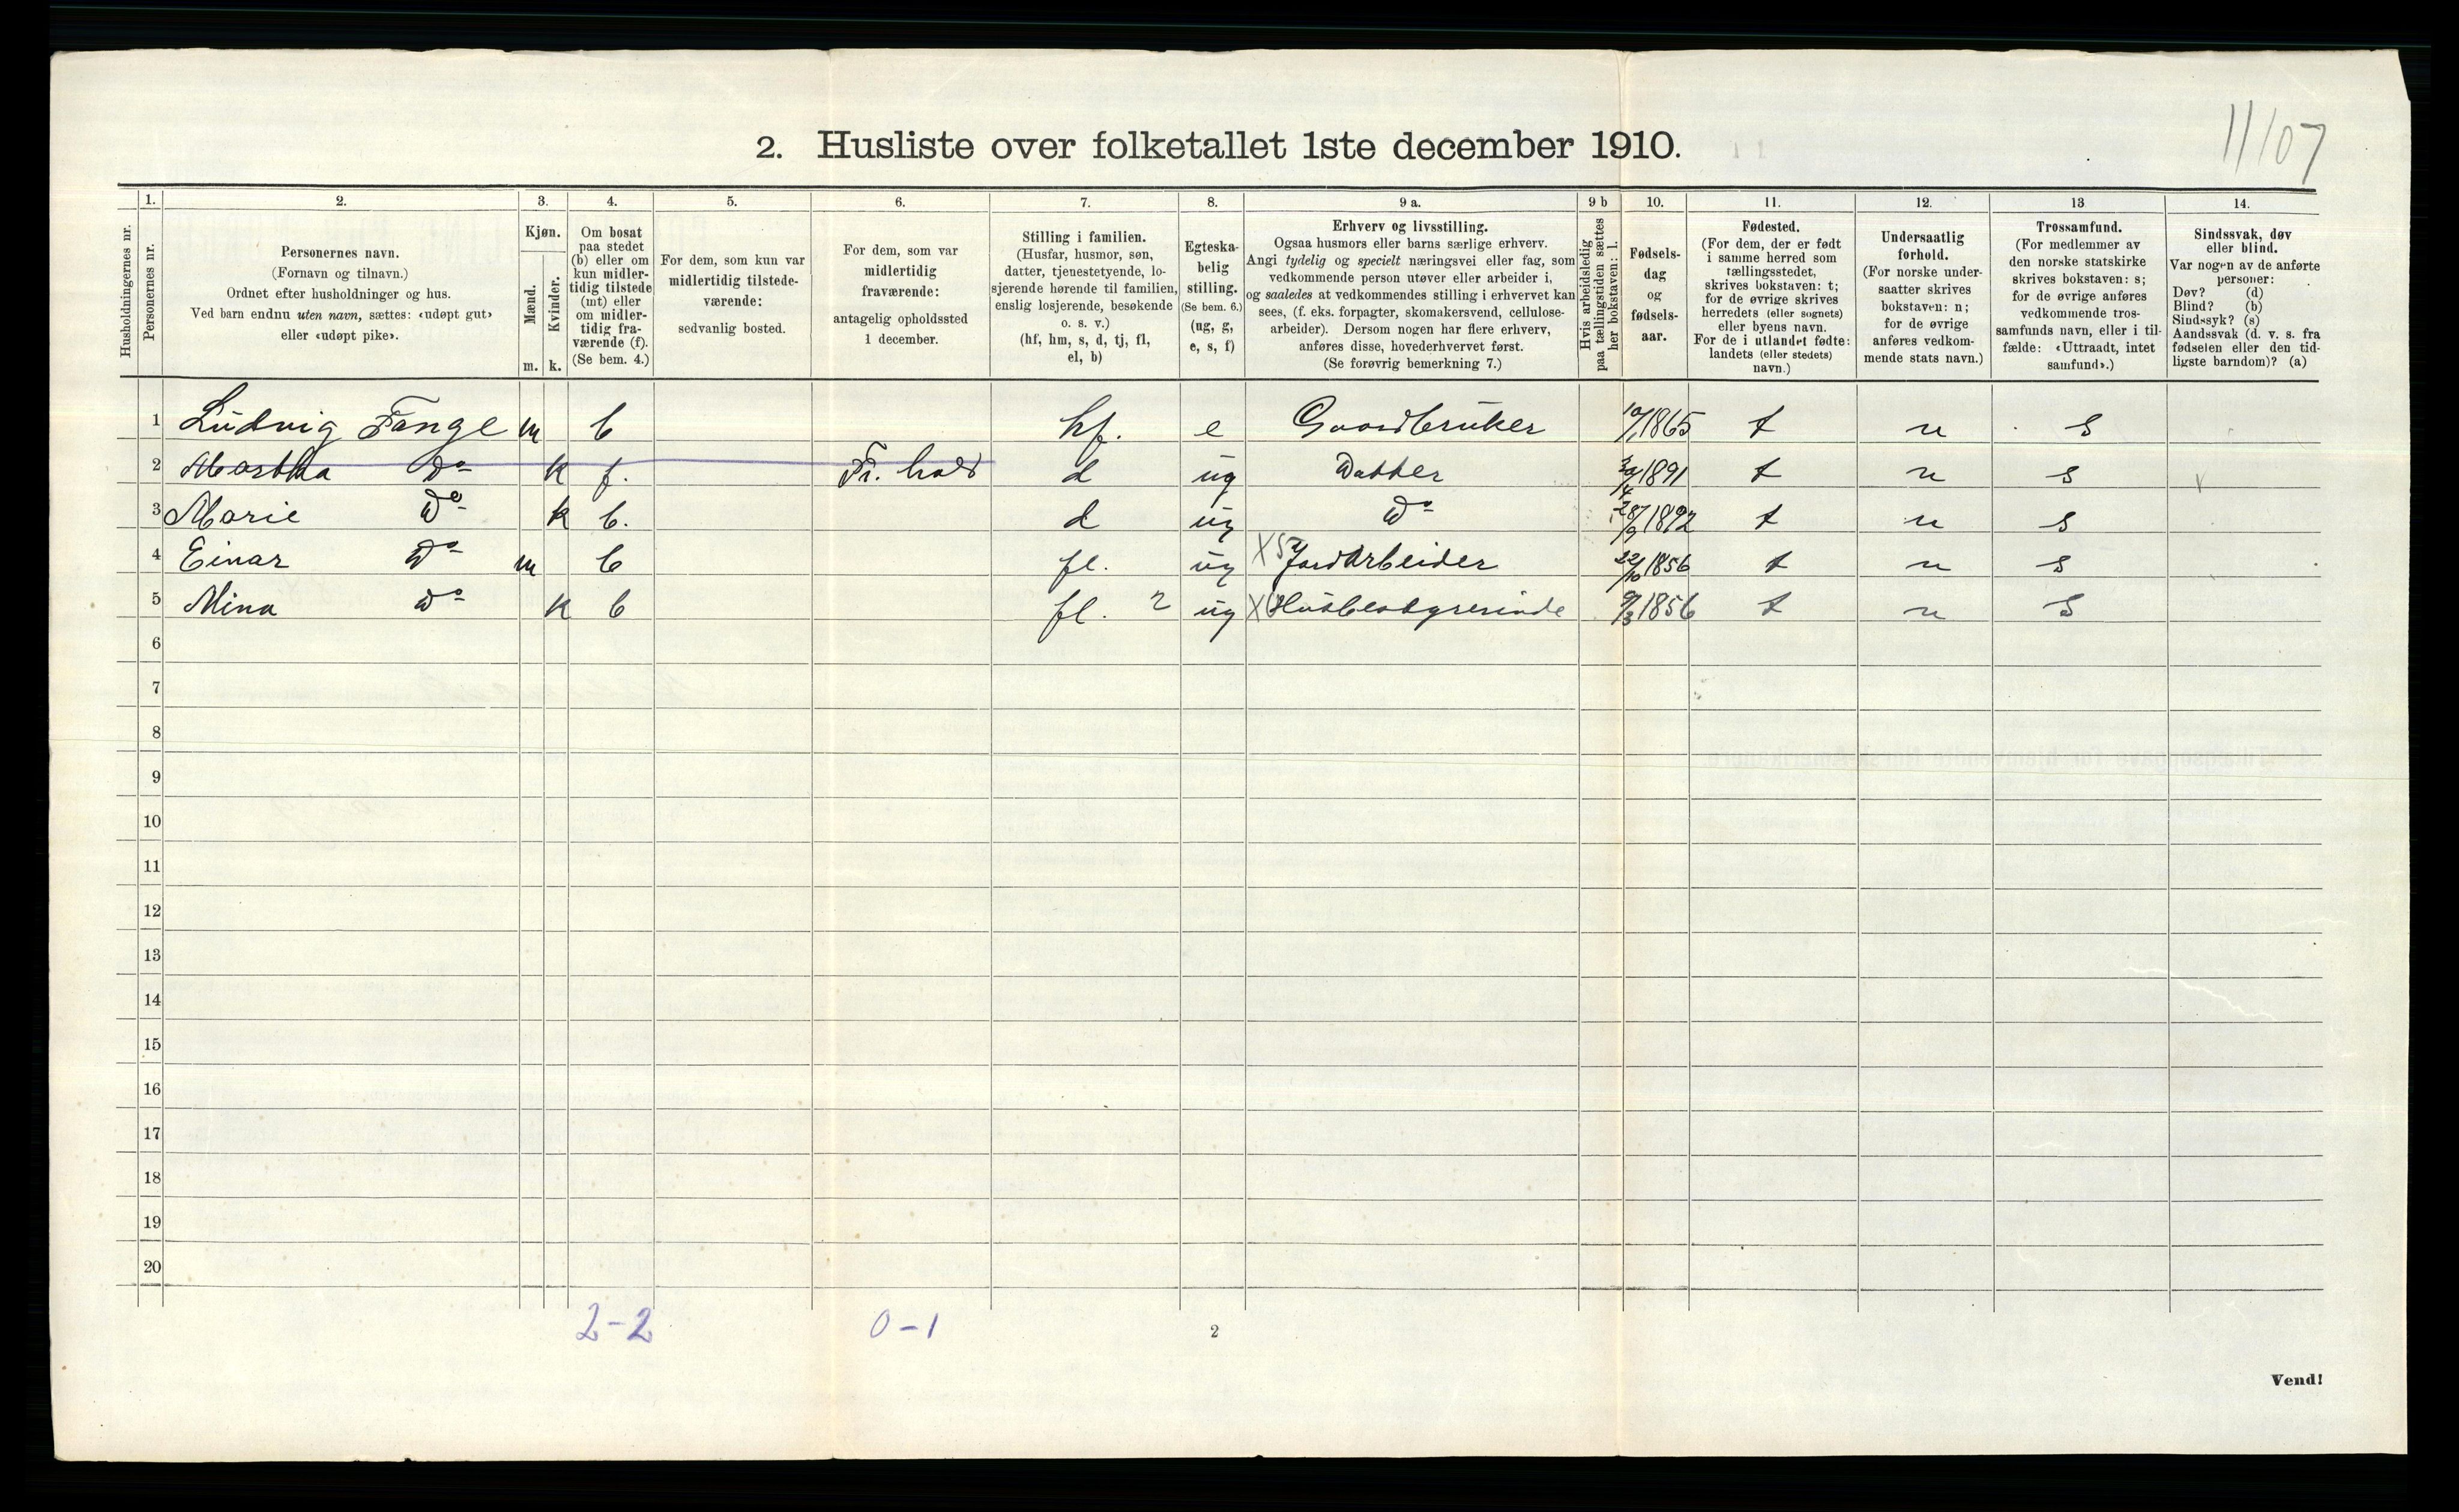 11/07
2. Husliste over folketallet 1ste december 1910.
1. 2. 3. 4. 5. 6. 7. 8. 9 a. 9 b 10. 11. 12. 13 14.
Husholdningernes nr.
Personernes nr.
Personernes navn.
(Fornavn og tilnavn.)
Ordnet efter husholdninger og hus.
Ved barn endnu uten navn, sættes: «udøpt gut»
eller «udøpt pike».
Kjøn.
Mænd.
Kvinder.
m. k.
Om bosat
paa stedet
(b) eller om
kun midler-
tidig tilstede
(mt) eller
om midler-
tidig fra-
værende (f).
(Se bem. 4.)
For dem, som kun var
midlertidig tilstede-
værende:
sedvanlig bosted.
For dem, som var
midlertidig
fraværende:
antagelig opholdssted
1 december.
Stilling i familien.
(Husfar, husmor, søn,
datter, tjenestetyende, lo-
sjerende hørende til familien,
enslig losjerende, besøkende
o. s. v.)
(hf, hm, s, d, tj, fl,
el, b)
Egteska-
belig
stilling.
(Se bem. 6.)
(ug, g,
e, s, f)
Erhverv og livsstilling.
Ogsaa husmors eller barns særlige erhverv.
Angi tydelig og specielt næringsvei eller fag, som
vedkommende person utøver eller arbeider i,
og saaledes at vedkommendes stilling i erhvervet kan
sees, (f. eks. forpagter, skomakersvend, cellulose-
arbeider). Dersom nogen har flere erhverv,
anføres disse, hovederhvervet først.
(Se forøvrig bemerkning 7.)
Hvis arbeidsledig
paa tællingstiden sættes
her bokstaven: l.
Fødsels-
dag
og
fødsels-
aar.
Fødested.
(For dem, der er født
i samme herred som
tællingsstedet,
skrives bokstaven: t;
for de øvrige skrives
herredets (eller sognets)
eller byens navn.
For de i utlandet fødte:
landets (eller stedets)
navn.)
Undersaatlig
forhold.
(For norske under-
saatter skrives
bokstaven: n;
for de øvrige
anføres vedkom-
mende stats navn.)
Trossamfund.
(For medlemmer av
den norske statskirke
skrives bokstaven: s;
for de øvrige anføres
vedkommende tros-
samfunds navn, eller i til-
fælde: «Uttraadt, intet
samfund».)
Sindssvak, døv
eller blind.
Var nogen av de anførte
personer:
Døv? (d)
Blind? (b)
Sindssyk? (s)
Aandssvak (d. v. s. fra
fødselen eller den tid-
ligste barndom)? (a)
1 Ludvig Fange m b hf. e Gaardbruker 1865 t n s
2 Martha Do k f. d ug Datter 1891 t n s
3 Marie Do k b. d ug Do 28/9 1892 t n s
4 Einar Do m b fl. ug X Jordarbeider 22/10 1856 t n s
5 Mina Do k b fl. ug X Husbestyrerinde 9/3 1856 t n s
6
7
8
9
10
11
12
13
14
15
16
17
18
19
20
2-2 0-1 2
Vend!